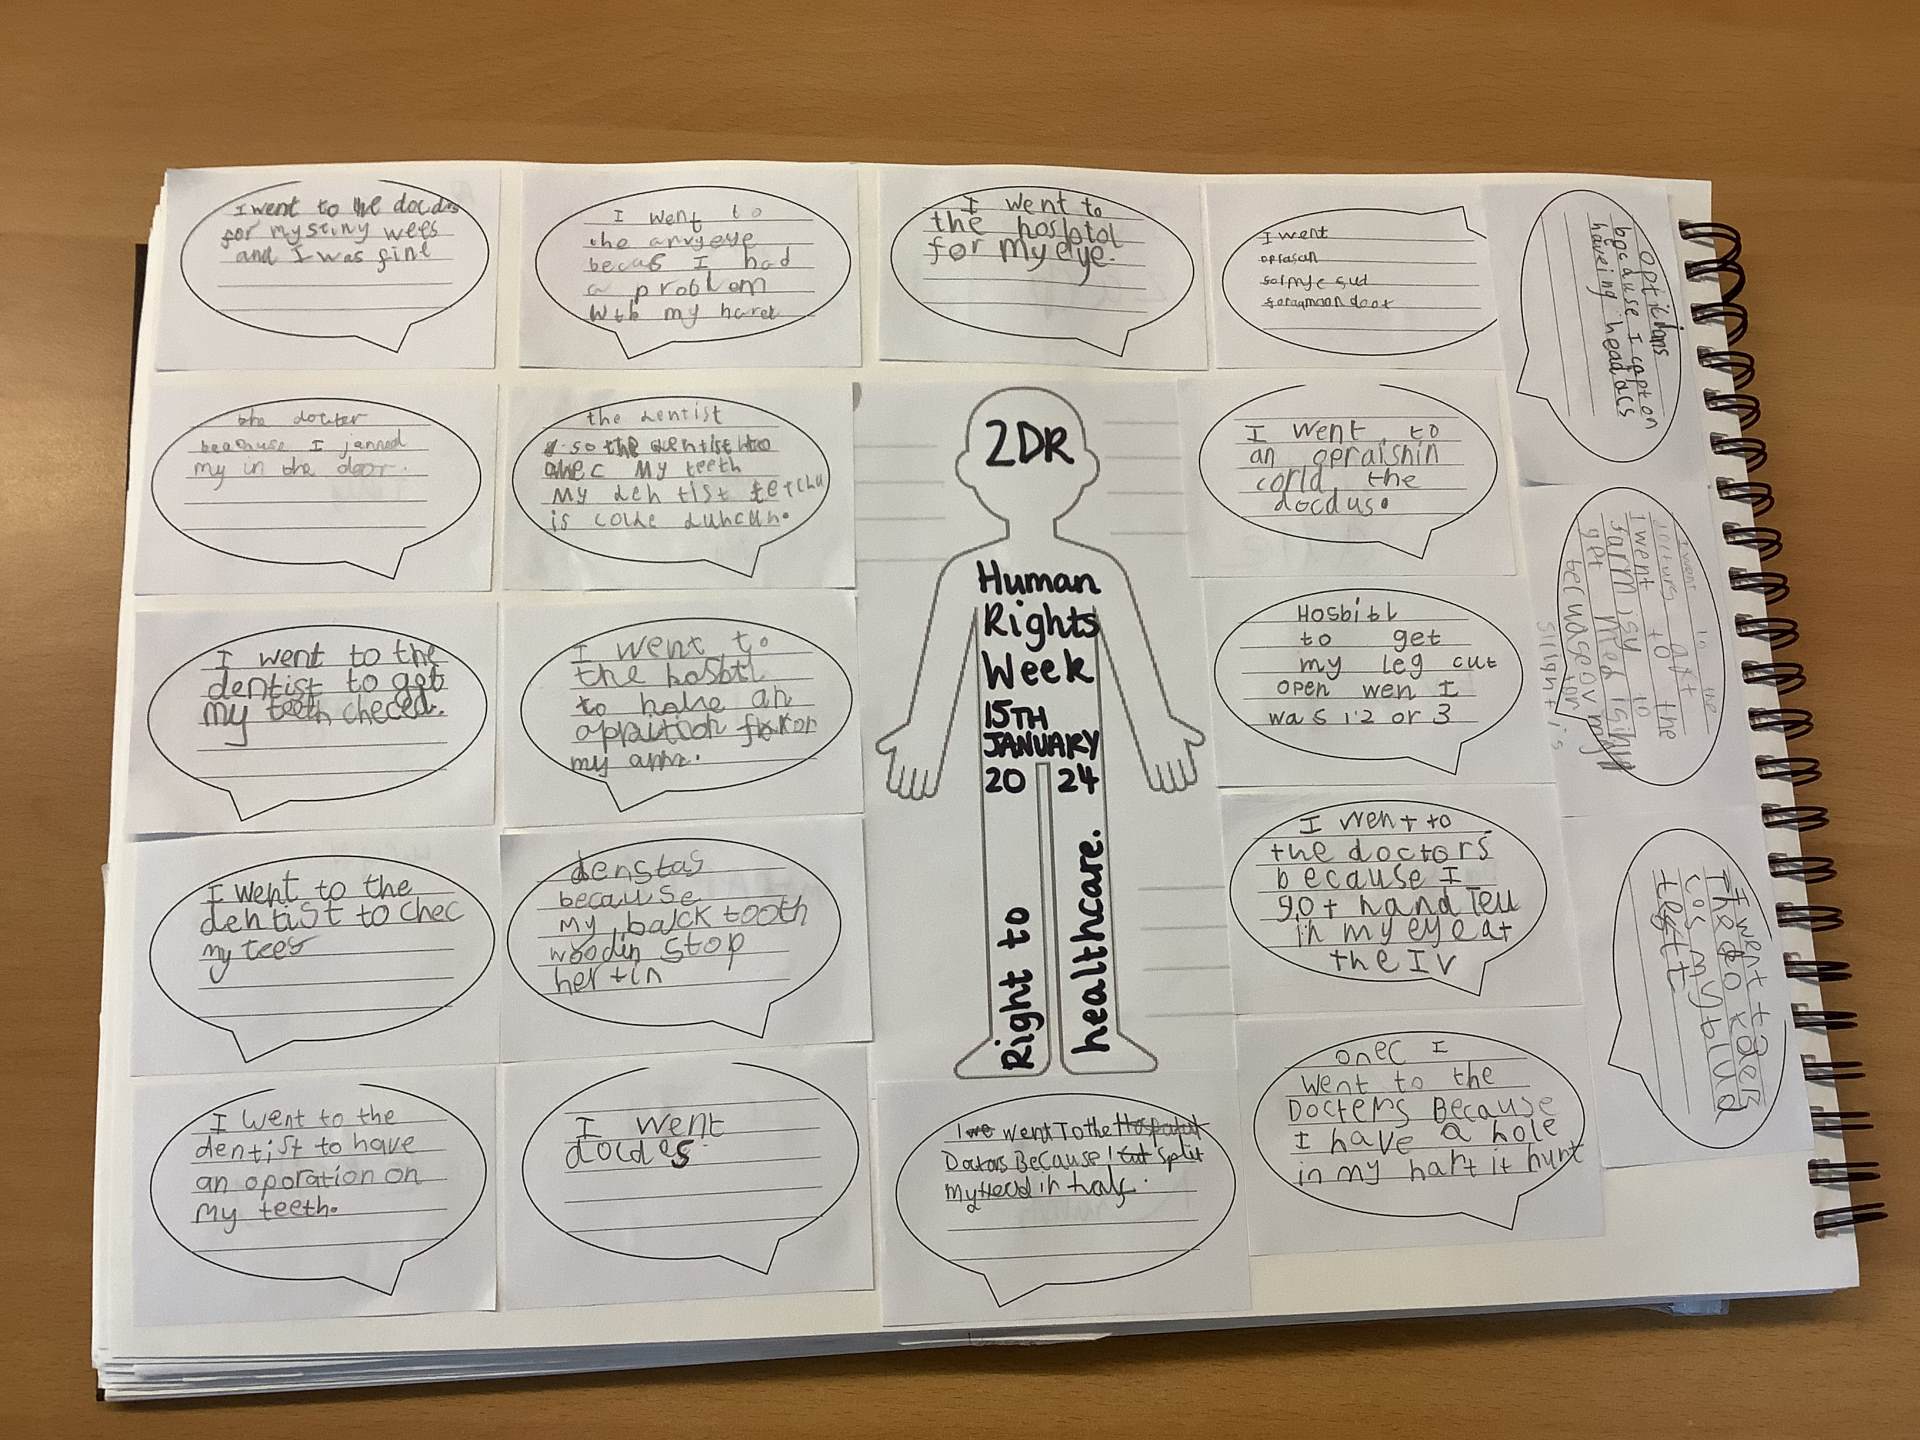 I went to the docdos
for my stiny wees
and I was fine
I went to
the
becas I had
a problem
with my haret
I went to
the hosbtol
for my eye.
I went
oprasan
opticians
becduse I cepton
haveing headdcs
the docter
beacause I jammed
my in the door.
the dentist
so the dentist to
chec my teeth
my dentist
is colde duncan.
2DR
Human
Rights
Week
15TH
JANUARY
20 24
Right to
healthcare.
I went to
an opraishin
corld the
docdus.
I went to the
dentist to get
my teeth checed.
I went to
the hosbtl
to have an
for
my arm.
Hosbitl
to get
my leg cut
open wen I
was 1.2 or 3
I went to the
I went to the
farmisy to
get
becuase ov my
I went to the
dentist to chec
my tees
denstas
because
my back tooth
woodin stop
hertin
I went to
the doctors
because I
got hand Teu
in my eye at
the IV
I went to
The do
cos my blud
I went to the
dentist to have
an oporation on
my teeth.
I went
docdes
I we went To the Hospatal
Doctors Because I cut split
my Head in half.
onec I
went to the
Docters Because
I have a hole
in my hart it hurt